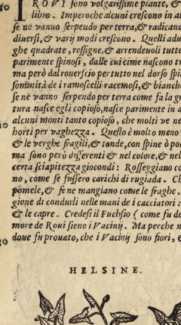 ROVI sono volgarissime piante, &
libro. Imperoche alcuni crescono in a
se ne vanno serpendo per terra, & radicans
diversi, & varij modi crescono. Quelli adu
ghe quadrate, rossigne, & arrendevoli tutte
parimente spinosi, dalle cui cime nascono tr
ma però dal rovescio per tutto nel dorso spin
somitá de i ramoscelli racemosi, & bianchi
se ne vanno serpendo per terra come fa la g
tura nasce egli copioso, nasce parimente in d
alcuni monti tanto copioso, che molti ve ne
horti per vaghezza. Questo è molto meno
& le verghe fragili, & tonde, con spine ò po
ma sono però differenti & nel colore, & nel
certa sciapitezza giocondi: Rosseggiano co
no, come se fussero carichi di rugiada. Ch
pomele, & se ne mangiano come le fraghe.
gione di condurli nelle mani de i cacciatori
& le capre. Credesi il Fuchsio (come fu de
more de Roui sieno i Vacinij. Ma perche n
doue fu prouato, che i Vacinij sono fiori, e
HELSINE.